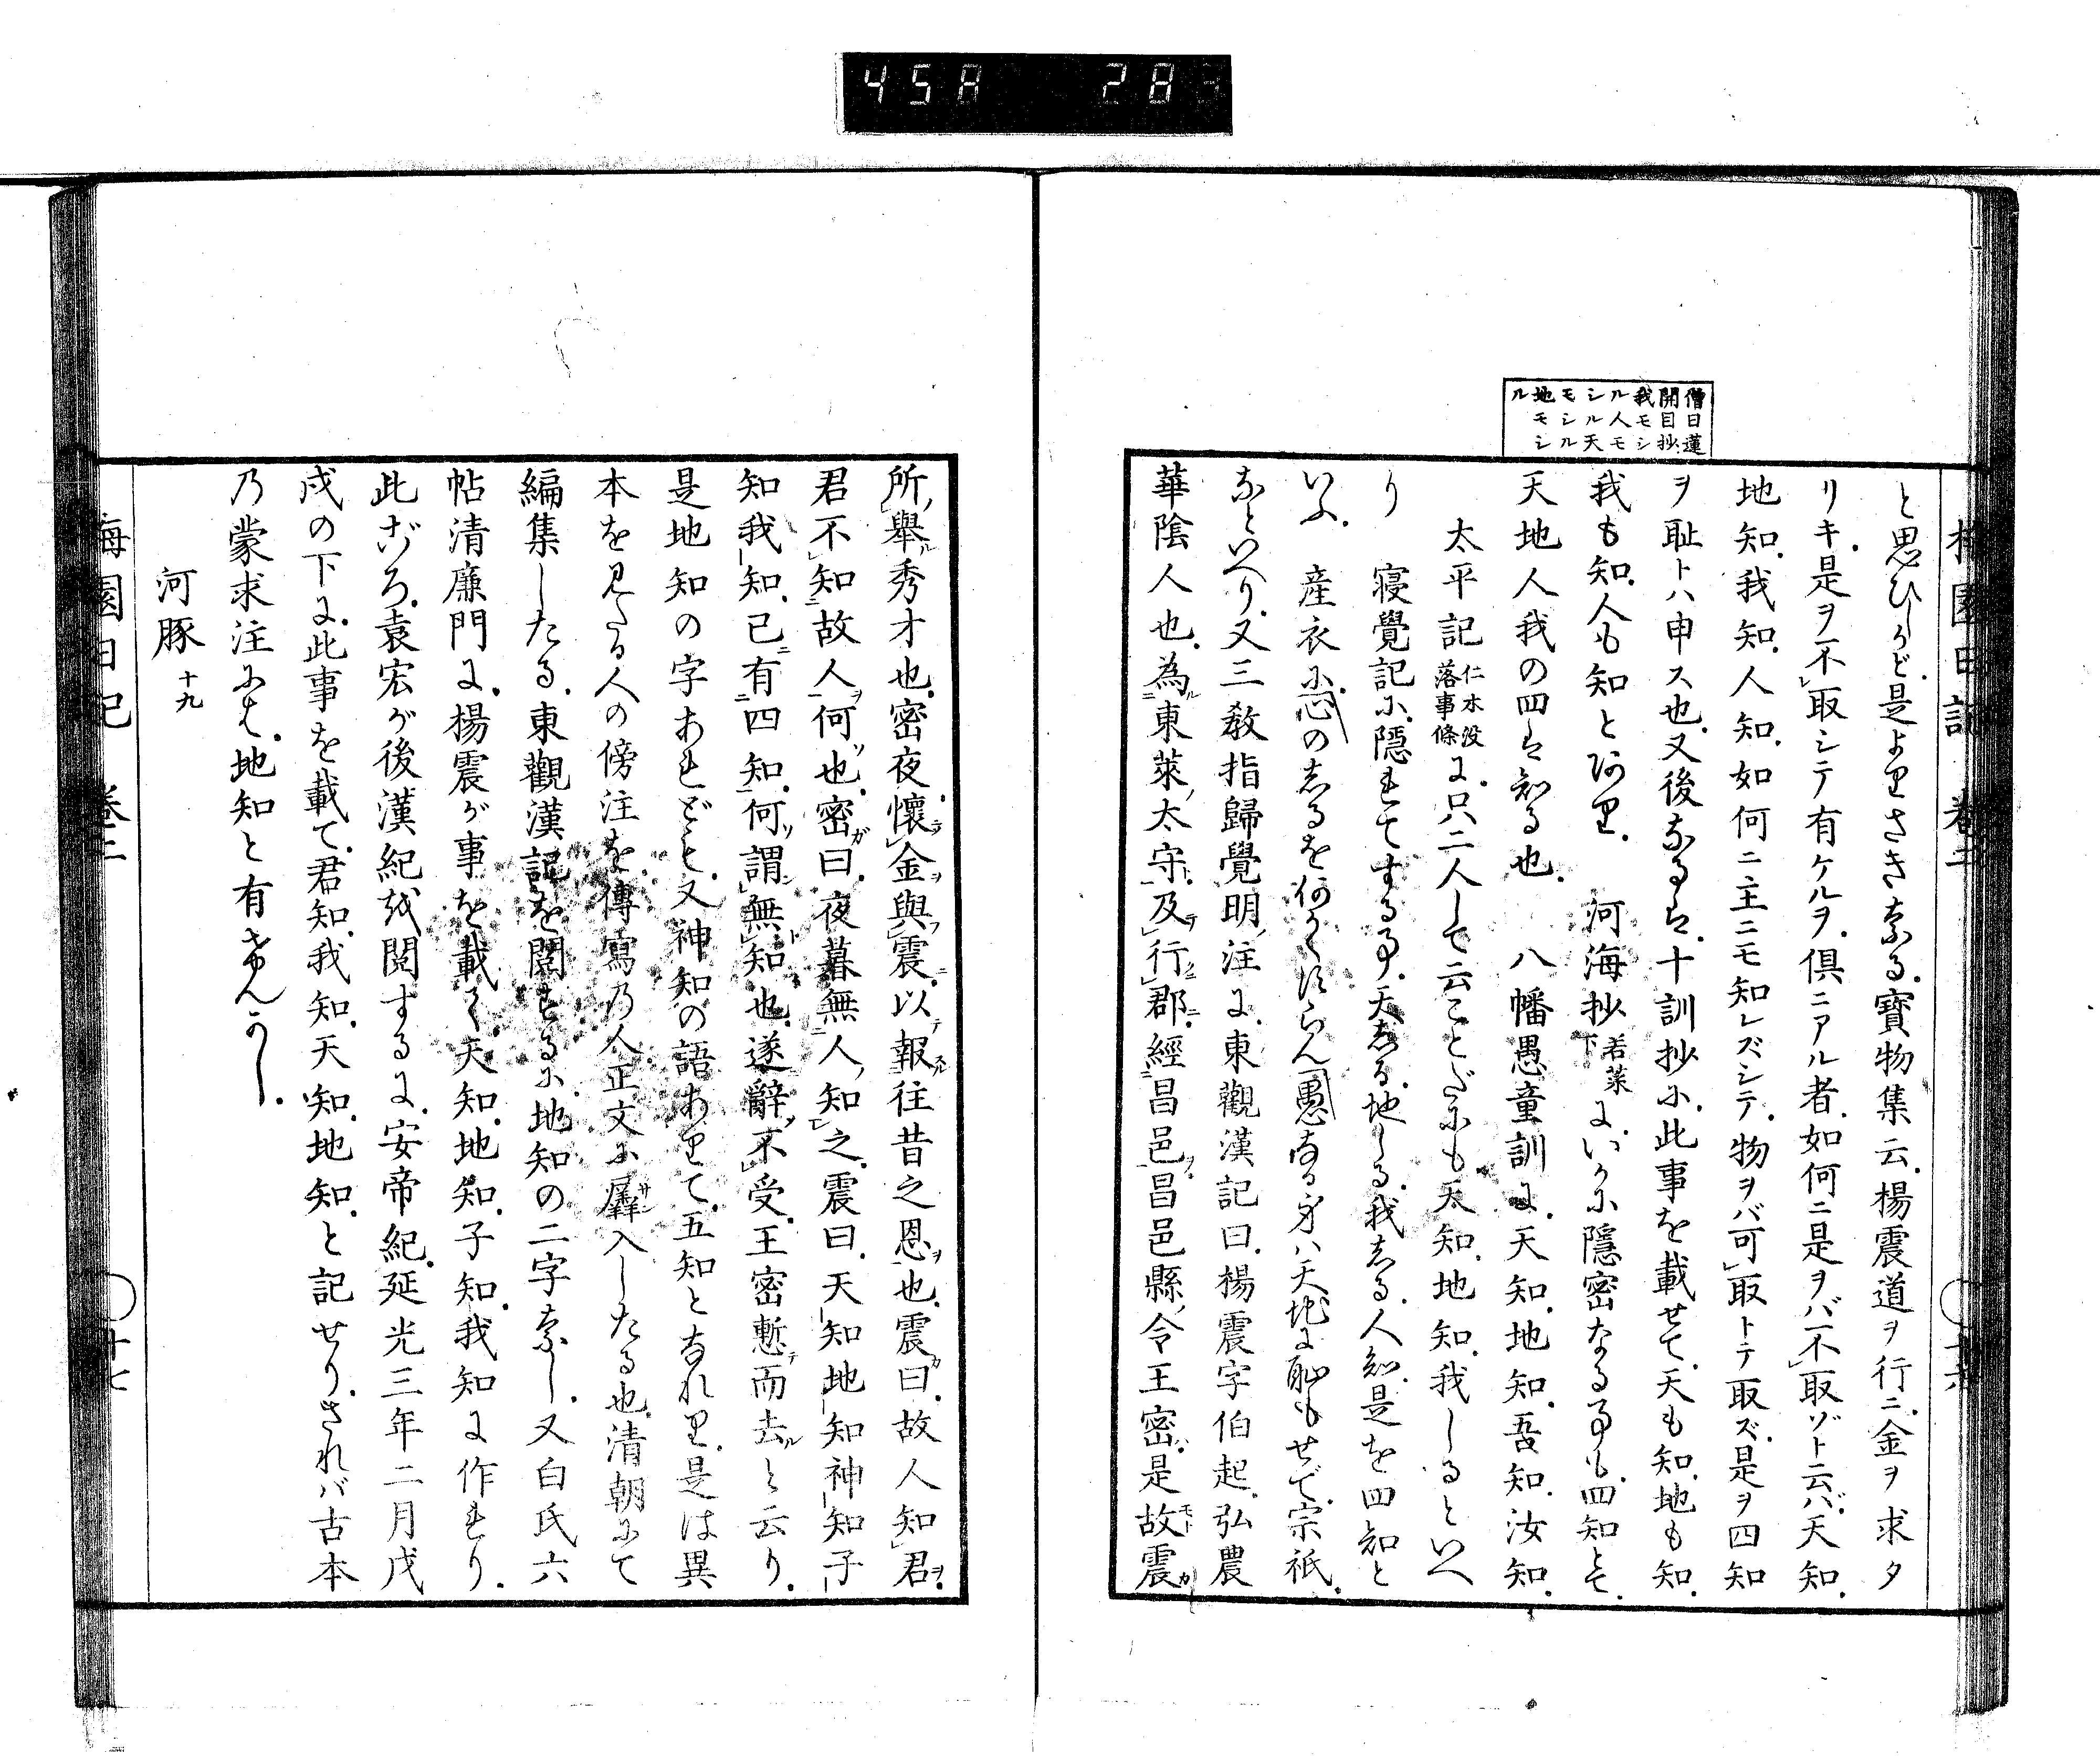 458 28
梅園日記 卷二
僧日蓮
開目抄
我モシ
ル人モ
シル天
モシル
地モシ
ル
と思ひしかど。是よりさきなる。寶物集云。楊震道ヲ行ニ。金ヲ求タ
リキ。是ヲ不取シテ有ケルヲ。倶ニアル者。如何ニ是ヲバ不取ゾト云バ。天知。
地知。我知。人知。如何ニ主ニモ知レズシテ。物ヲバ可取トテ取ズ。是ヲ四知
ヲ耻トハ申ス也。又後なるは。十訓抄に。此事を載せて。天も知。地も知。
我も知。人も知とあり。 河海抄若菜下に。いかに隱密なる事も。四知とて。
天地人我の四は知る也。 八幡愚童訓に。天知。地知。吾知。汝知。
太平記仁木没落事條に。只二人して云ことだにも天知。地知。我しるといへ
り 寝覺記に。隱れてする事。天しる。地しる。我しる。人知。是を四知と
いふ。 産衣に。心のしるを何かくすらん愚なる身ハ天地に耻もせで。宗祇。
などいへり。又三教指歸覺明注に。東觀漢記曰。楊震字伯起。弘農
華陰人也。為ル東萊ノ太守ト。及テ行ニ郡ニ。經昌邑ヲ。昌邑縣ノ令王密ハ。是故モト震カ
所ノ舉ル秀才也。密夜懷ラ金ヲ與フ震ニ。以テ報スル往昔之恩ヲ也。震カ曰。故人知君ヲ。
君不知故人ヲ何ソ也。密ガ曰。夜暮無ニ人ノ知之。震曰。天知地知神知子
知我知。已ニ有四知。何ソ謂無ト知也。遂ニ辭ノ不受。王密慙テ而去ルと云り。
是地知の字あれども。又神知の語ありて。五知となれり。是は異
本を見たる人の傍注を。傳寫乃人。正文に羼サン入したる也。清朝にて
編集したる。東觀漢記を閲するに。地知の二字なし。又白氏六
帖清廉門に。楊震が事を載て。天知。地知。子知。我知に作れり。
此ごろ。袁宏が後漢紀を閲するに。安帝紀。延光三年二月戊
戌の下に。此事を載て。君知。我知。天知。地知。と記せり。されバ古本
乃蒙求注にも。地知と有けんかし。
河豚 十九
梅園日記 卷二
十七